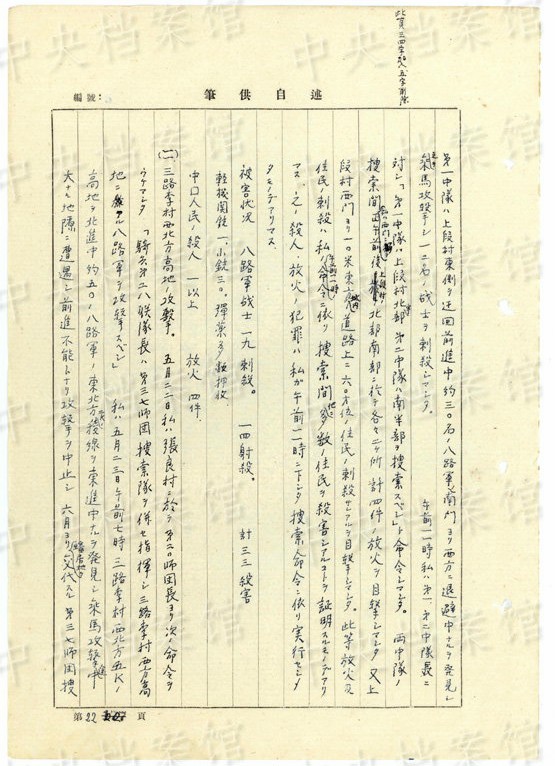 此頁三四字加入五字削除
筆供自述
編號:
第一中隊ハ上段村東側ヲ迂回前進中約三〇名ノ八路軍ノ南門ヨリ西方ニ退避中ナルヲ発見シ
乗馬攻撃シ一二名ノ战士ヲ刺殺シマシタ。 午前一一時私ハ第一、第二中隊長ニ
対シ「第一中隊ハ上段村北部第二中隊ハ南半部ヲ捜索スベシ」ト命令シマシタ。 両中隊ノ
捜索間 正午前後 上段村 北部南部ニ於テ各々二ヶ所計四件ノ放火ヲ目撃シマシタ 又上
段村西門ヨリ一〇米東 道路上ニ六〇才位ノ住民ノ刺殺 ヲ目撃シマシタ。此等放火及
住民ノ刺殺ハ私ノ 命令ニ依リ捜索間 多数ノ住民ヲ殺害シアルコトヲ証明スルモノデアリ
マス、之ノ殺人・放火ノ犯罪ハ私ガ午前一一時ニ下シタ捜索命令ニ依リ実行セシメ
タモノデアリマス
被害状况 八路軍战士一九刺殺。 一四射殺。 計三三殺害
軽機関銃一、小銃三〇。弾薬多数押收
中国人民ノ殺人 一以上 放火 四件
(二)三路李村西北方高地攻撃。 五月二二日私ハ張良村ニ於テ第 師団長ヨリ次ノ命令ヲ
ウケマシタ 「騎兵第二八联隊長ハ第三七師団捜索隊ヲ併セ指揮シ三路李村西方高
地ニ アル八路軍ヲ攻撃スベシ」 私ハ五月二三日午前七時三路李村西北方五Kノ
高地ヲ北進中約五〇ノ八路軍ノ東北方稜線ヲ東進中ナルヲ発見シ乗馬攻撃中
大ナル地隙ニ遭遇シ前進不能トナリ攻撃ヲ中止シ 六月 交代スル第三七師団捜
第22頁